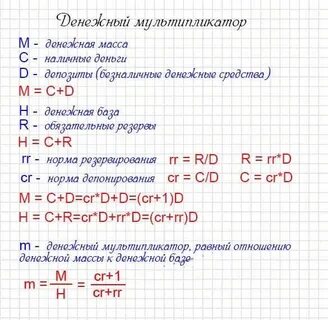 Денежный мультипликатор
М - денежная масса
С - наличные деньги
D - депозиты (безналичные денежные средства)
M = C+D
H - денежная база
R - обязательные резервы
H = C+R
rr - норма резервирования rr = R/D R = rr*D
cr - норма депонирования cr = C/D C = cr*D
M = C+D=cr*D+D=(cr+1)D
H = C+R=cr*D+rr*D=(cr+rr)D
m - денежный мультипликатор, равный отношению
денежной массы к денежной базе
m = M/H = cr+1/cr+rr